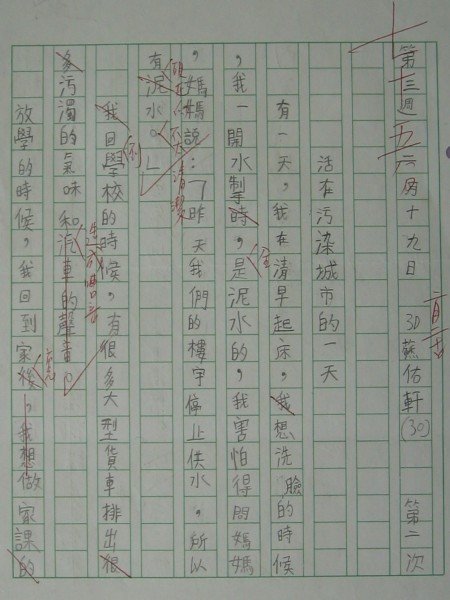 第三週五六月十九日 3D蘇佑軒(30) 第二次
活在污染城市的一天
有一天,我在清早起床,我想洗臉的時候
,我一開水掣時,是泥水的,我害怕得問媽媽
,媽媽說:「昨天我們的樓宇停止供水,所以
有泥水。」
我回學校的時候,有很多大型貨車排出很
多污濁的氣味和汽車的聲音。
放學的時候,我回到家後,我想做家課的